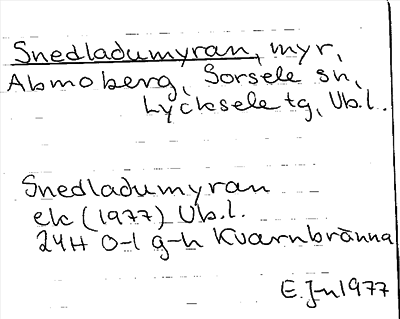 Snedladumyran, myr,
Abmoberg, Sorsele sn,
Lycksele tg, Vb.l.
Snedladumyran
ek (1977) Vb.l.
24H 0-1 g-h Kvarnbränna
E. Jn 1977